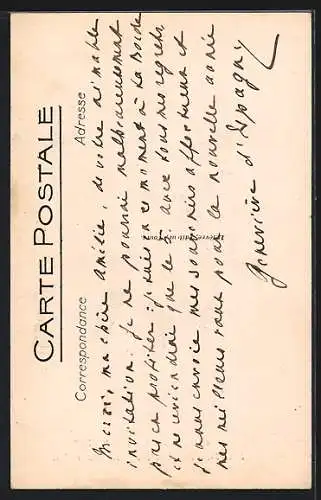 CARTE POSTALE
Correspondance
Adresse
Merci, ma chère Amélie, de votre aimable
invitation. Je ne pourrai malheureusement
pas en profiter : je suis en ce moment à La Borde
et ne reviendrai que le 7. avec tous mes regrets
je vous envoie mes souvenirs affectueux et
mes meilleurs vœux pour la nouvelle année
Geneviève d'Espagny